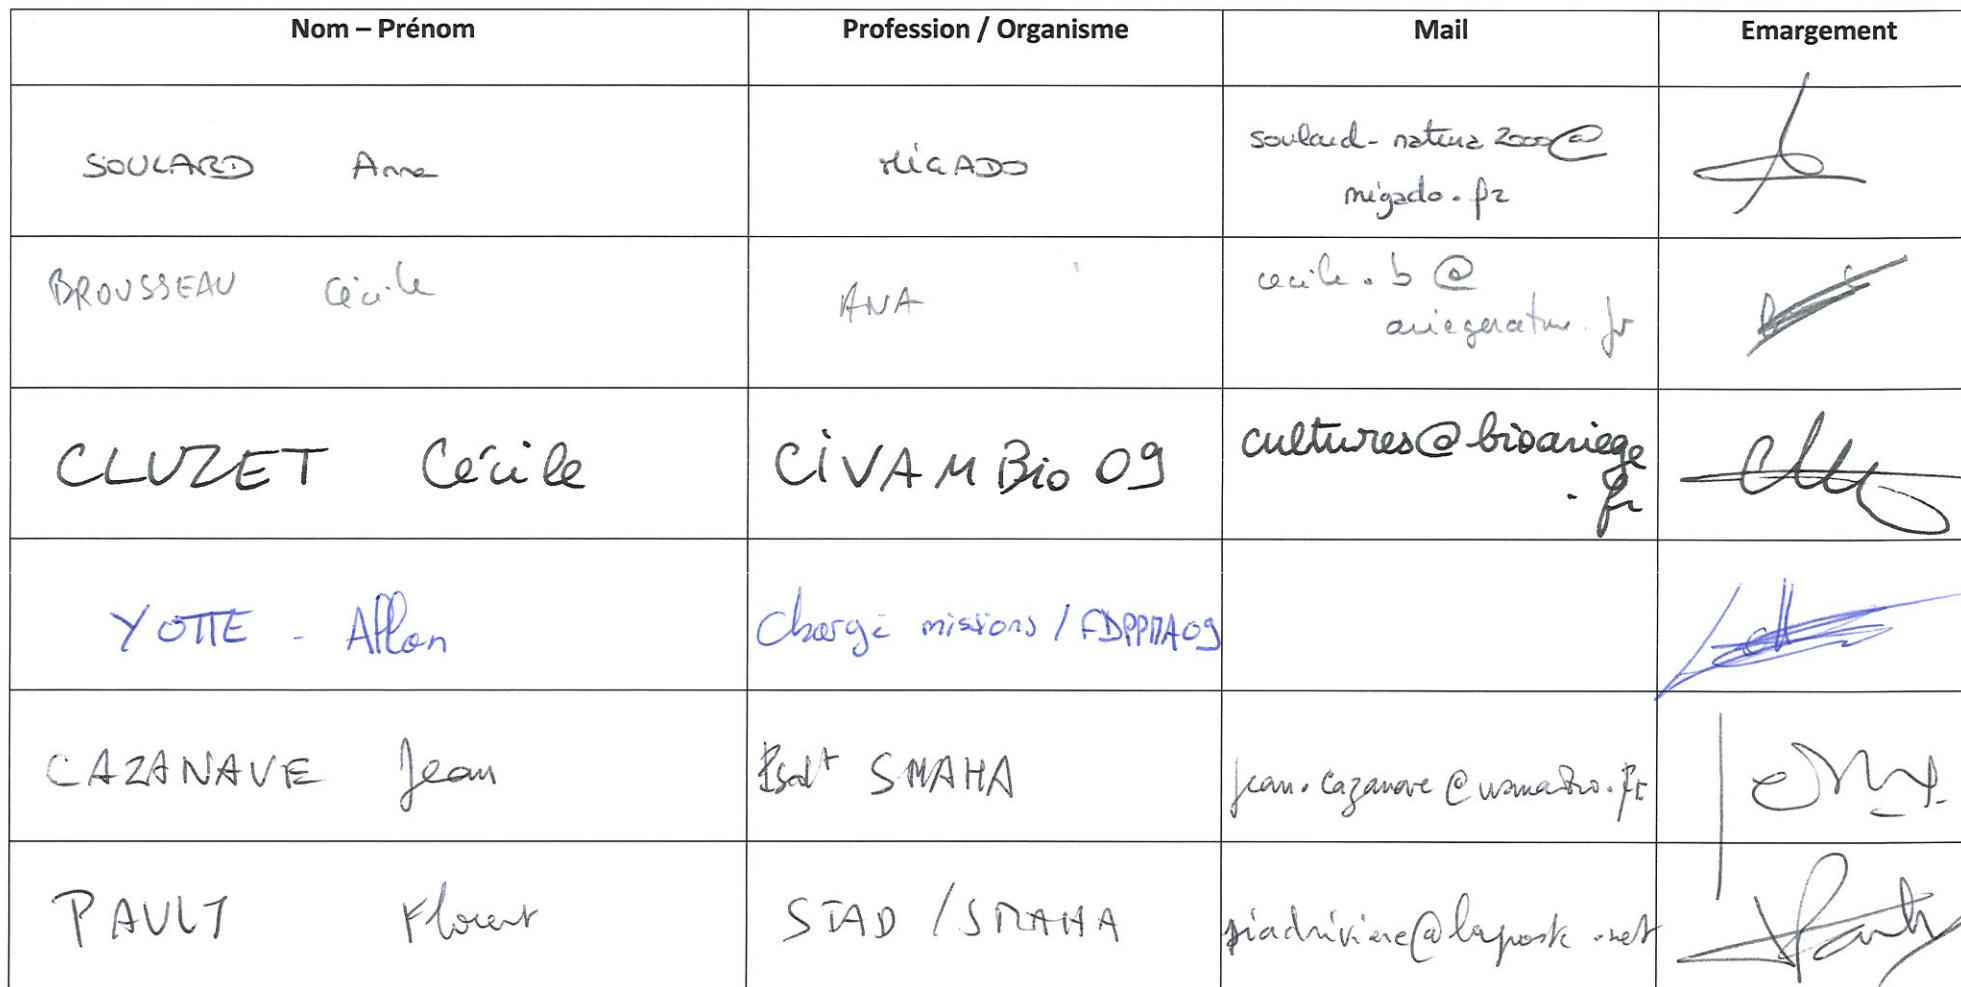 Nom – Prénom Profession / Organisme Mail Emargement
SOULARD Anne MIGADO soulard-natura2000@
migado.fr
BROUSSEAU Cécile ANA cecile.b@
ariegenature.fr
CLUZET Cécile CIVAM Bio 09 cultures@bioariege
.fr
YOTTE - Allan Chargé missions / FDPPMA09
CAZANAVE Jean SMAHA
PAULT Florent SIAD / SMAHA siadriviere@laposte.net